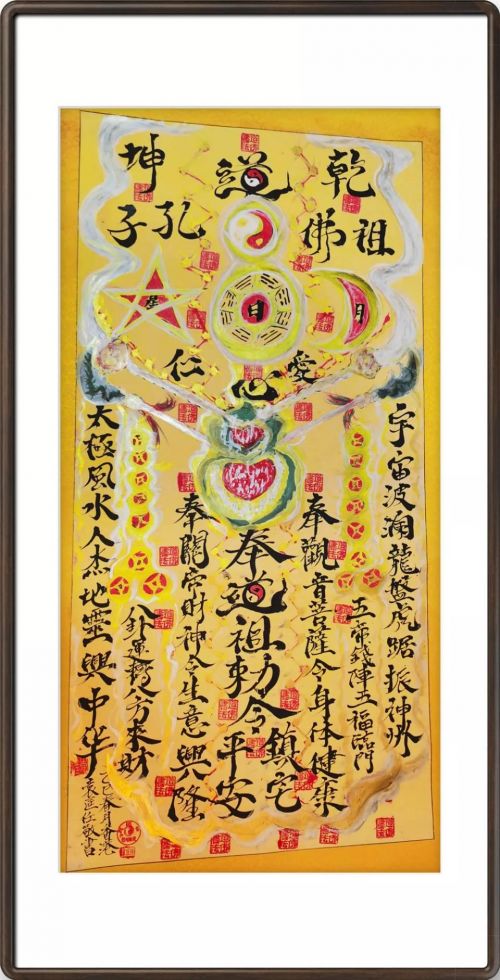 乾 道 坤
佛祖 孔子
日 月 星
仁 心 愛
宇宙波瀾龍盤虎踞振神州
五帝錢陣五福臨門
奉觀音菩薩令身体健康
奉道祖勅令鎮宅平安
奉關帝財神令生意興隆
八卦運轉八方來財
太極風水人杰地靈興中华
乙巳春月香港
敬書